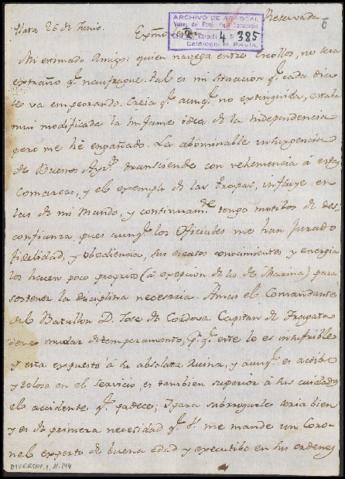 Reservada
Plata 26 de Junio.
Exmo
ARCHIVO DE ABASCAL
4 385
6
Mi estimado Amigo: quien navega entre Escollos, no sera
extraño qe. naufrague. tal es mi situacion qe. cada dia
se va empeorando. Creia qe. aunqe. no extinguida, estaba
mui modificada la infame idea de la independencia
pero me hé engañado. La abominable insurgencia
de Buenos Ayrs. transciende con vehemencia á estas
Comarcas, y el exemplo de las tropas, influye en
las de mi Mando, y continuamte. tengo motibos de des
confianza pues aunqe. los Oficiales me han jurado
fidelidad, y obediencia, sus escasos conocimientos y energia
los hacen poco proprios (á excepcion de los de Marina) para
sostener la disciplina necesaria. el Comandante
del Batallon D. Jose de Cordova Capitan de Fragata
deve mudar de temperamento, pr. qe. este lo es insufrible
y esta expuesto á su absoluta Ruina, y aunqe. es actibo
y zeloso en el servicio, es tambien superior á sus cuidados
el accidente qe. padece; para subrrogarle seria bien
y es de primera necesidad qe. me mande un Coro-
nel experto de buena edad y executibo en sus ordenes
DIVERSOS, 1, N. 144